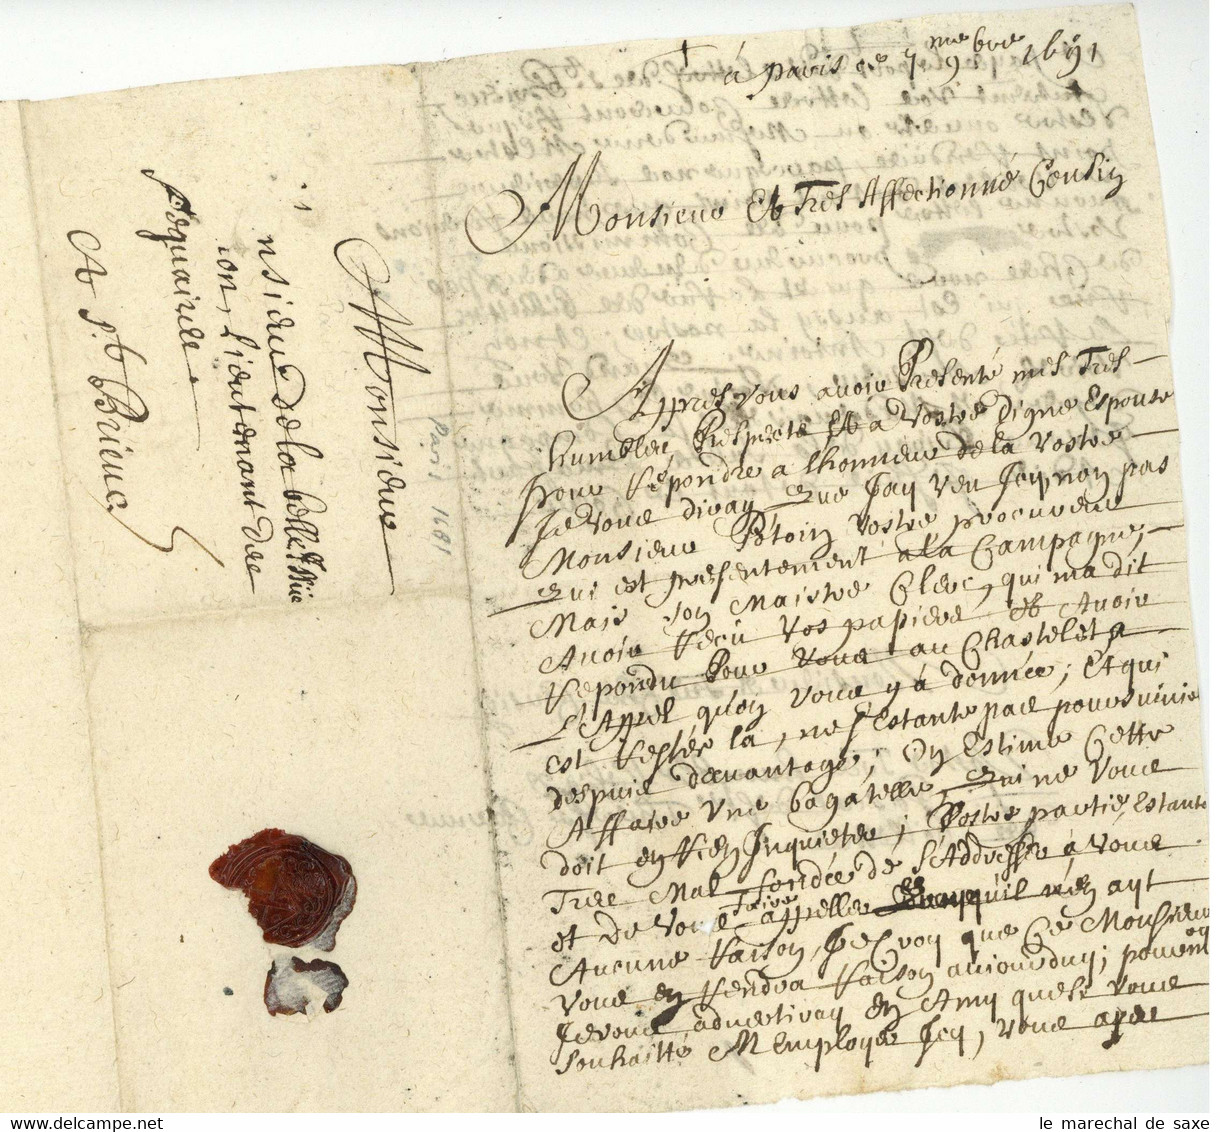 à paris ce 7me 9bre 1691
Monsieur Et Tres Affectionné Cousin
Appres vous avoir Presenté mes Tres
humbles Respects Et a Vostre Digne Espouse
pour Respondre a lhonneur de la Vostre
Je vous diray Que Jay veu Icy non pas
Monsieur Potoin Vostre procureur
Qui est presentement a la Campagne,
Mais son Maistre Clerc, qui ma dit
Avoir Receu Vos papiers Et Avoir
Repondu Pour Vous au Chastelet a
L'Appel qu'on Vous y a donnée; Et qui
est Restée la, ne s'Estante pas poursuivie
despuis davantage; On Estime Cette
Affaire Une bagatelle, Qui ne Vous
doit en Rien Inquieter; Vostre partie, Estante
Tres Mal fondée de s'Addresser à Vous
et de Vous faire appeller
Aucune Raison, Je Croy que Ce Monsieur
Vous en Rendra Raison aujourduy;
Je vous advertiray En Amy que si Vous
Souhaitté M'Employer Icy, Vous
Monsieur
nsieur de la belle Issüe
ion, Lieutenant de
A St Brieuc
Paris 1691
le marechal de saxe